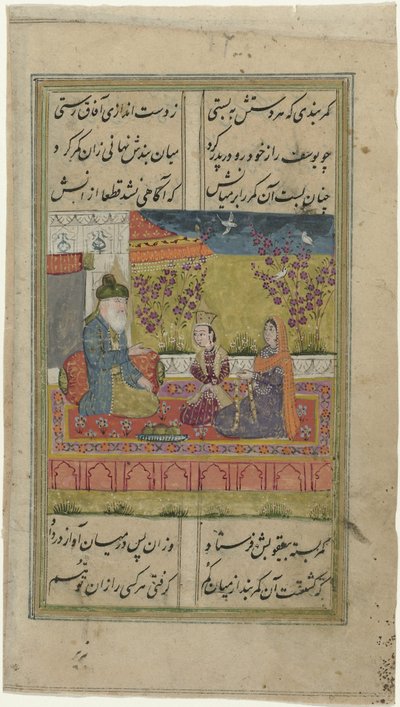 کمربندی که هر دستش به بستی ز دست اندازی آفاق رستی
چو یوسف را ز خود رو در پدر کرد میان بندش نهانی زان کمر کرد
چنان بست آن کمر را بر میانش که آگاهی نشد قطعا از انش
کمر بسته بیعقوبش فرستاد وزان پس در میان آواز در داد
که گشتست آن کمربند از میان گم گرفتی هر کسی را زان توهم